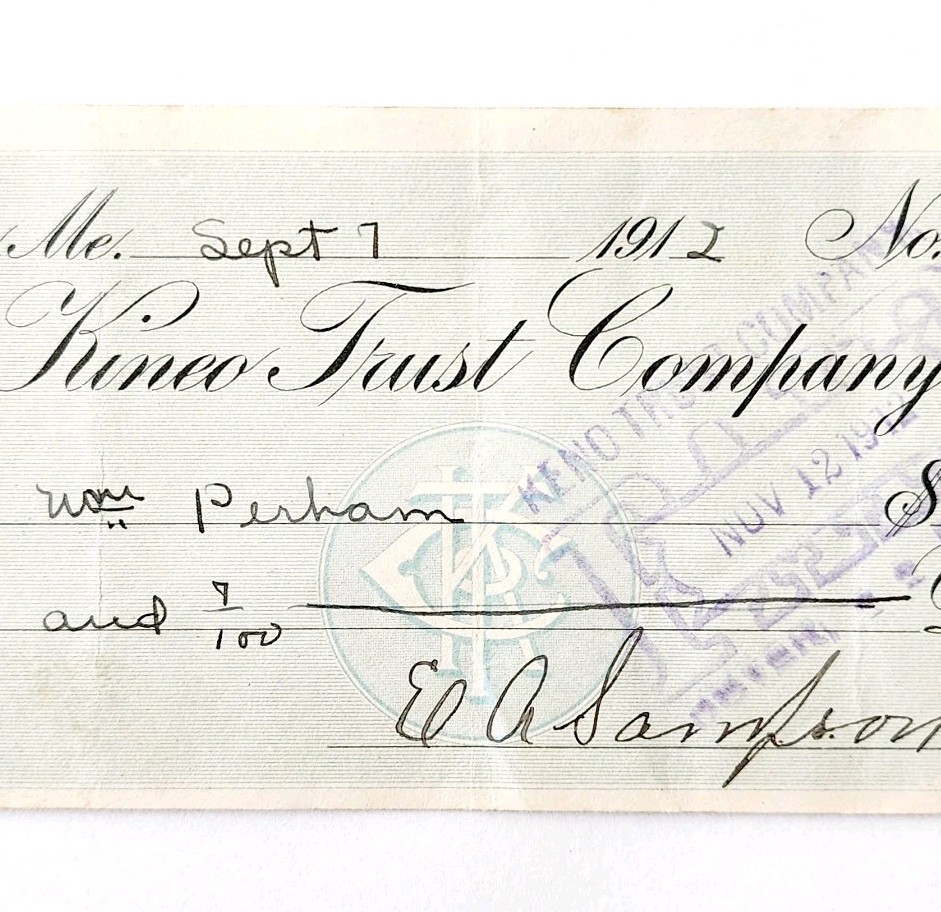 Me. Sept 7 1912 No.
Kineo Trust Company
Wm Perham $
and 7/100
E A Sampson
KENO TRUST COMPANY
PAID
NOV 12 1912